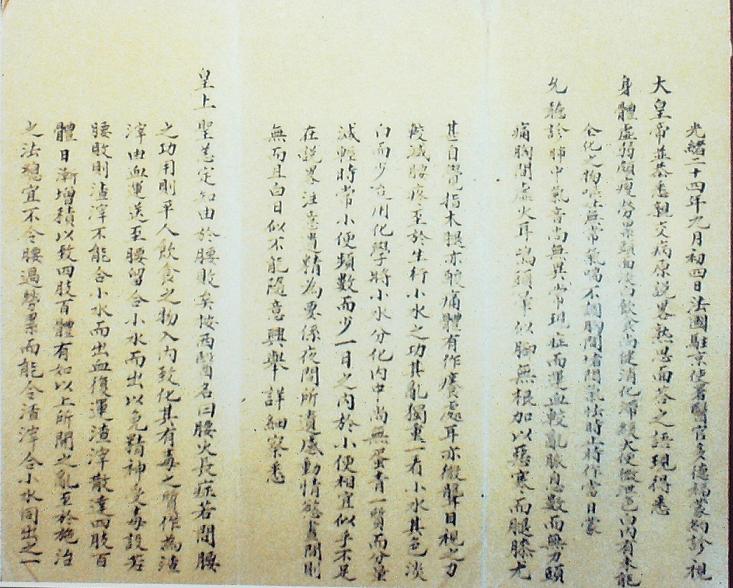 光緒二十四年九月初四日法國駐京使署醫官多德福蒙約診視
大皇帝並恭悉親交病原說畧熟思面答之語現得悉
身體虛弱頗瘦勞累頭面淡白飲食尚健消化滯緩大便微泄色白內有未能
合化之物嘔吐無常氣喘不調胸間堵悶氣怯時止時作當日蒙
允聽診肺中氣音尚無異常現症而運血較亂脈息數而無力頭
痛胸間虛火耳鳴頭暈似腳無根加以惡寒而腿膝尤
甚自覺指木腿亦酸痛體有作癢處耳亦微聾目視之力
較減腰疼至於生行小水之功其亂獨重一看小水其色淡
白而少迨用化學將小水分化內中尚無蛋青一質而分量
減輕時常小便頻數而少一日之內於小便相宜似乎不足
在說畧注意遺精為要係夜間所遺感動情慾晝間則
無而且白日似不能隨意興舉詳細察悉
皇上聖恙定知由於腰敗矣按西醫名曰腰火長症若問腰
之功用則平人飲食之物入內致化其有毒之質作為渣
滓由血運送至腰留合小水而出以免精神受毒設若
腰敗則渣滓不能合小水而出血復運渣滓散達四肢百
體日漸增積以致四肢百體有如以上所開之亂至於施治
之法總宜不令腰過勞累而能令渣滓合小水同出之一